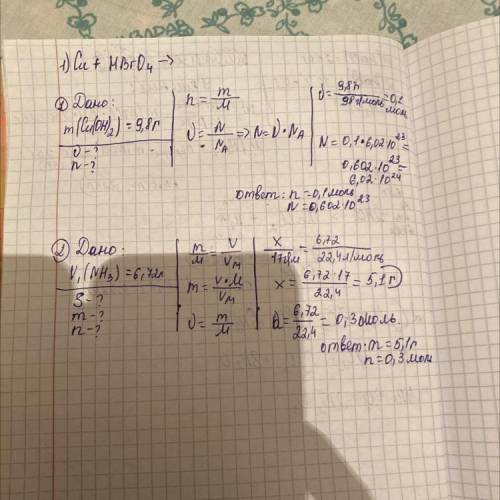 1) Cu + HBrO4 →
① Дано:
m(Cu(OH)2) = 9,8 г
υ - ?
N - ?
n = m/M
υ = N/NA => N = υ · NA
υ = 9,8 г/98 г/моль = 0,1 моль
N = 0,1 · 6,02·10^23 =
0,602·10^23 =
6,02·10^24
ответ: n = 0,1 моль
N = 0,602·10^23
② Дано:
V1 (NH3) = 6,72 л
S - ?
m - ?
n - ?
m/M = V/VM
m = V·M/VM
υ = m/M
x/17 г/м = 6,72/22,4 л/моль
x = 6,72·17/22,4 = 5,1 г
υ = 6,72/22,4 = 0,3 моль.
ответ: m = 5,1 г
n = 0,3 мол